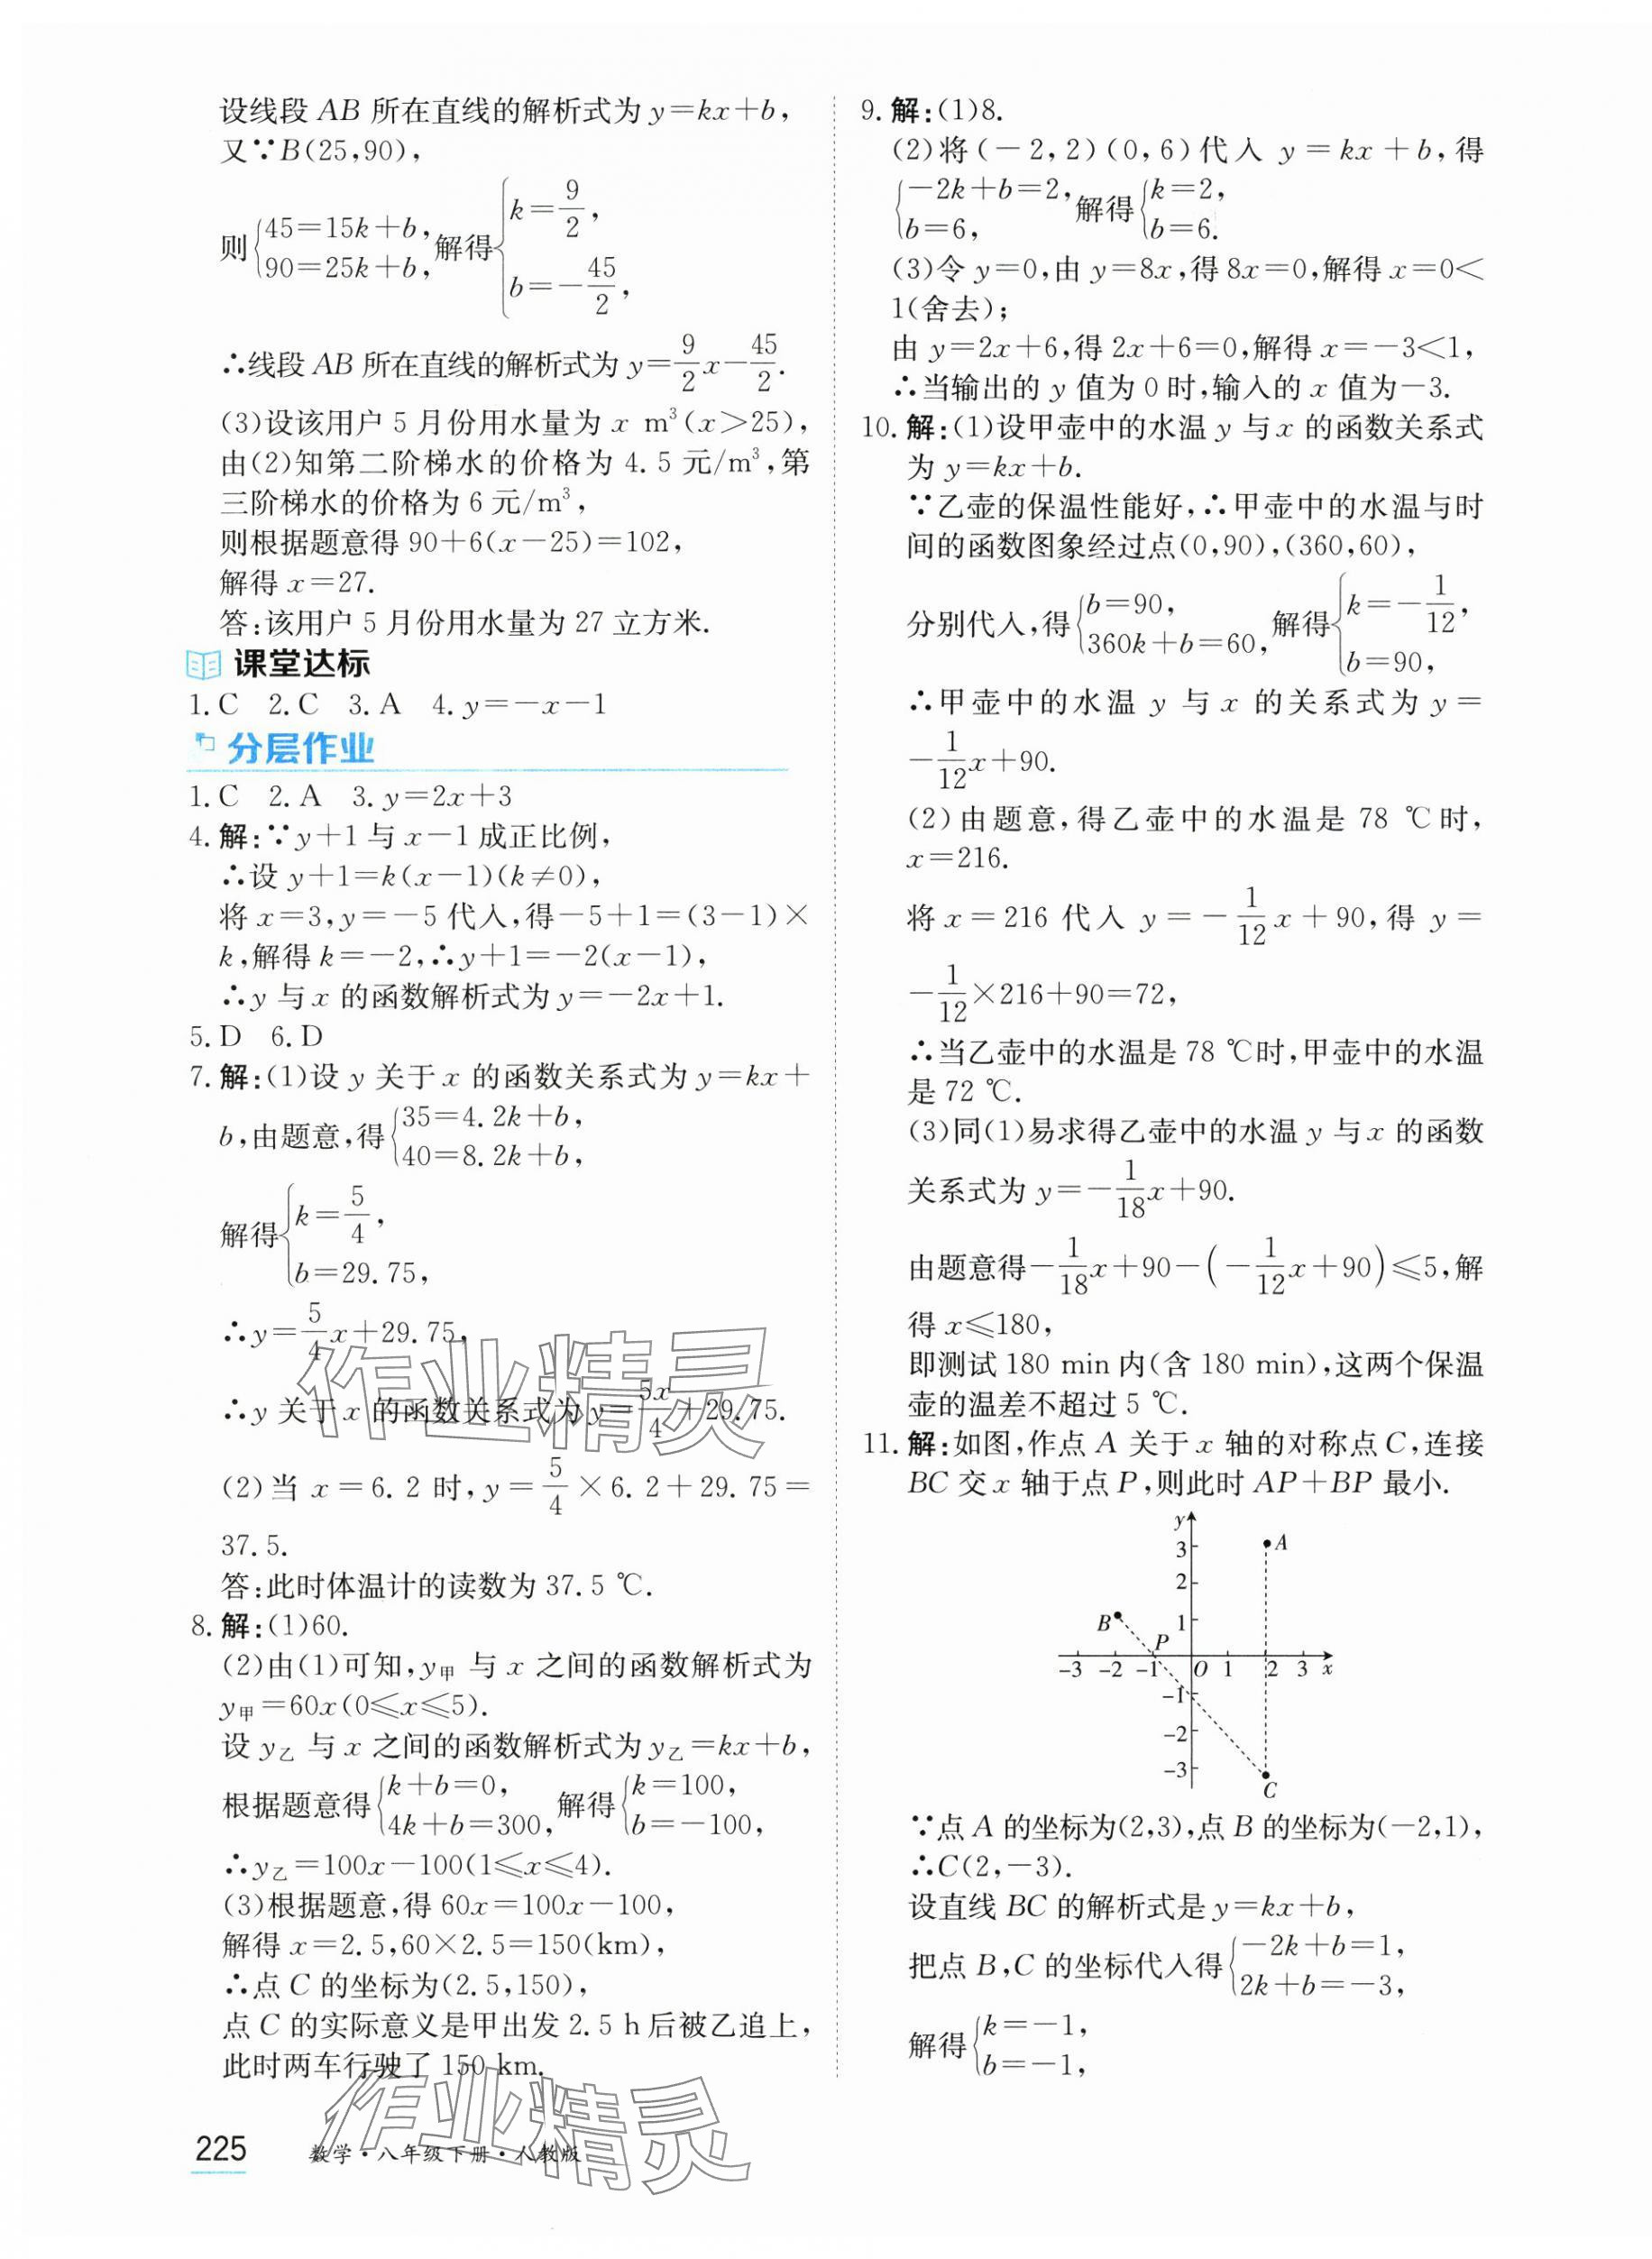 设线段 AB 所在直线的解析式为 y=kx+b,
又∵B(25,90),
则{45=15k+b, 90=25k+b, 解得{k=9/2, b=-45/2,
∴线段 AB 所在直线的解析式为 y=9/2x-45/2.
(3)设该用户 5 月份用水量为 x m³(x>25),
由(2)知第二阶梯水的价格为 4.5 元/m³,第
三阶梯水的价格为 6 元/m³,
则根据题意得 90+6(x-25)=102,
解得 x=27.
答:该用户 5 月份用水量为 27 立方米.
课堂达标
1.C 2.C 3.A 4.y=-x-1
分层作业
1.C 2.A 3.y=2x+3
4.解:∵y+1 与 x-1 成正比例,
∴设 y+1=k(x-1)(k≠0),
将 x=3,y=-5 代入,得-5+1=(3-1)×
k,解得 k=-2,∴y+1=-2(x-1),
∴y 与 x 的函数解析式为 y=-2x+1.
5.D 6.D
7.解:(1)设 y 关于 x 的函数关系式为 y=kx+
b,由题意,得{35=4.2k+b, 40=8.2k+b,
解得{k=5/4, b=29.75,
∴y=5/4x+29.75,
∴y 关于 x 的函数关系式为 y=5x/4+29.75.
(2)当 x=6.2 时,y=5/4×6.2+29.75=
37.5.
答:此时体温计的读数为 37.5 ℃.
8.解:(1)60.
(2)由(1)可知,y甲 与 x 之间的函数解析式为
y甲=60x(0≤x≤5).
设 y乙 与 x 之间的函数解析式为 y乙=kx+b,
根据题意得{k+b=0, 4k+b=300, 解得{k=100, b=-100,
∴y乙=100x-100(1≤x≤4).
(3)根据题意,得 60x=100x-100,
解得 x=2.5,60×2.5=150(km),
∴点 C 的坐标为(2.5,150),
点 C 的实际意义是甲出发 2.5 h 后被乙追上,
此时两车行驶了 150 km.
9.解:(1)8.
(2)将(-2,2)(0,6)代入 y=kx+b,得
{-2k+b=2, b=6, 解得{k=2, b=6.
(3)令 y=0,由 y=8x,得 8x=0,解得 x=0<
1(舍去);
由 y=2x+6,得 2x+6=0,解得 x=-3<1,
∴当输出的 y 值为 0 时,输入的 x 值为-3.
10.解:(1)设甲壶中的水温 y 与 x 的函数关系式
为 y=kx+b.
∵乙壶的保温性能好,∴甲壶中的水温与时
间的函数图象经过点(0,90),(360,60),
分别代入,得{b=90, 360k+b=60, 解得{k=-1/12, b=90,
∴甲壶中的水温 y 与 x 的关系式为 y=
-1/12x+90.
(2)由题意,得乙壶中的水温是 78 ℃时,
x=216.
将 x=216 代入 y=-1/12x+90,得 y=
-1/12×216+90=72,
∴当乙壶中的水温是 78 ℃时,甲壶中的水温
是 72 ℃.
(3)同(1)易求得乙壶中的水温 y 与 x 的函数
关系式为 y=-1/18x+90.
由题意得-1/18x+90-(-1/12x+90)≤5,解
得 x≤180,
即测试 180 min 内(含 180 min),这两个保温
壶的温差不超过 5 ℃.
11.解:如图,作点 A 关于 x 轴的对称点 C,连接
BC 交 x 轴于点 P,则此时 AP+BP 最小.
y
3 A
2
B 1
P
-3 -2 -1 O 1 2 3 x
-1
-2
-3
C
∵点 A 的坐标为(2,3),点 B 的坐标为(-2,1),
∴C(2,-3).
设直线 BC 的解析式是 y=kx+b,
把点 B,C 的坐标代入得{-2k+b=1, 2k+b=-3,
解得{k=-1, b=-1,
作业精灵
作业精灵
225 数学·八年级下册·人教版